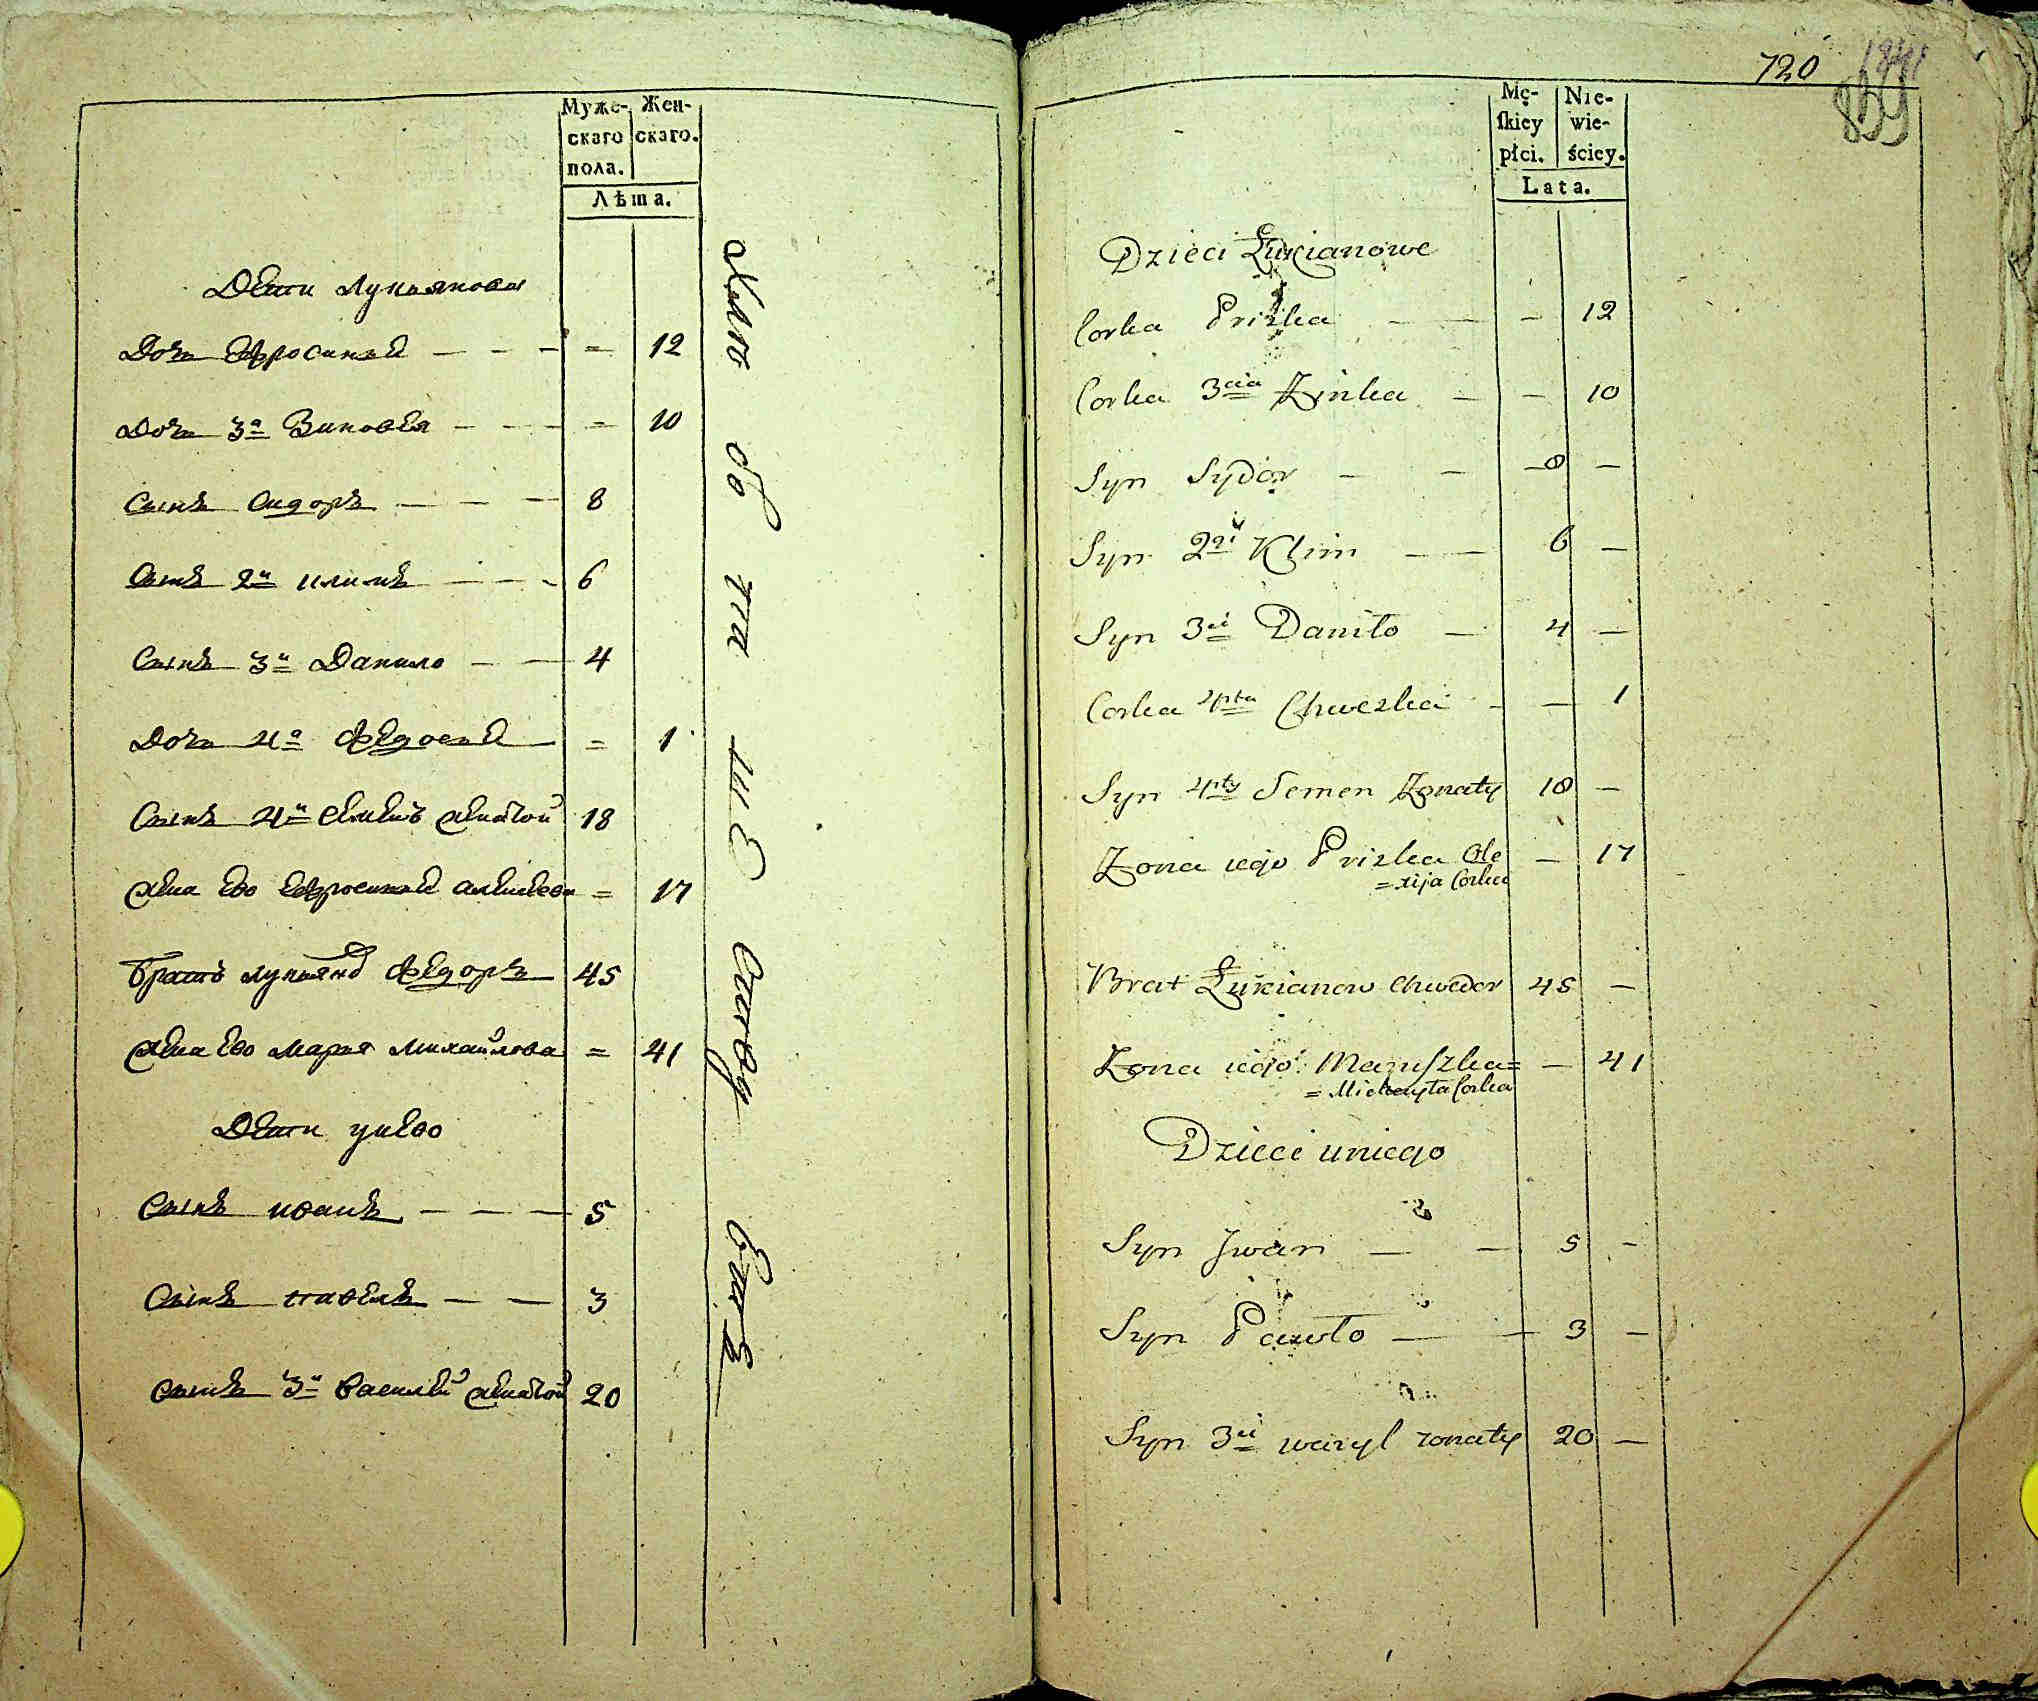 Муже- Жен-
скаго скаго.
пола.
Лѣта.
Дети Лукьяновы
Дочь Ефросиния — — — = 12
Дочь 3а Зиновея — — — = 10
Сынъ Сидоръ — — — 8
Сынъ 2й Климъ — — — 6
Сынъ 3й Данило — — 4
Дочь 4а Федосия — = 1
Сынъ 4й Семенъ женатой 18
Жена ево Ефросиния Алексеева = 17
Братъ Лукьяна Федоръ 45
Жена ево Марья Михайлова = 41
Дети унево
Сынъ Иванъ — — — 5
Сынъ Павелъ — — 3
Сынъ 3й Василей женатой 20
720
Mę- Nie-
skiey wie-
płci. ściey.
Lata.
Dzieci Łukianowe
Corka Priska — — — 12
Corka 3cia Zinka — — 10
Syn Sydor — — 8 —
Syn 2gi Klim — — 6 —
Syn 3ci Daniło — 4 —
Corka 4ta Chweska — — 1
Syn 4ty Semen Zonaty 18 —
Zona iego Priska Ole — 17
=xija Corka
Brat Łukianow Chwedor 45 —
Zona iego Maruszka= — 41
= Michayła Corka
Dzieci uniego
Syn Jwan — — 5 —
Syn Pawło — — 3 —
Syn 3ci wasyl zonaty 20 —